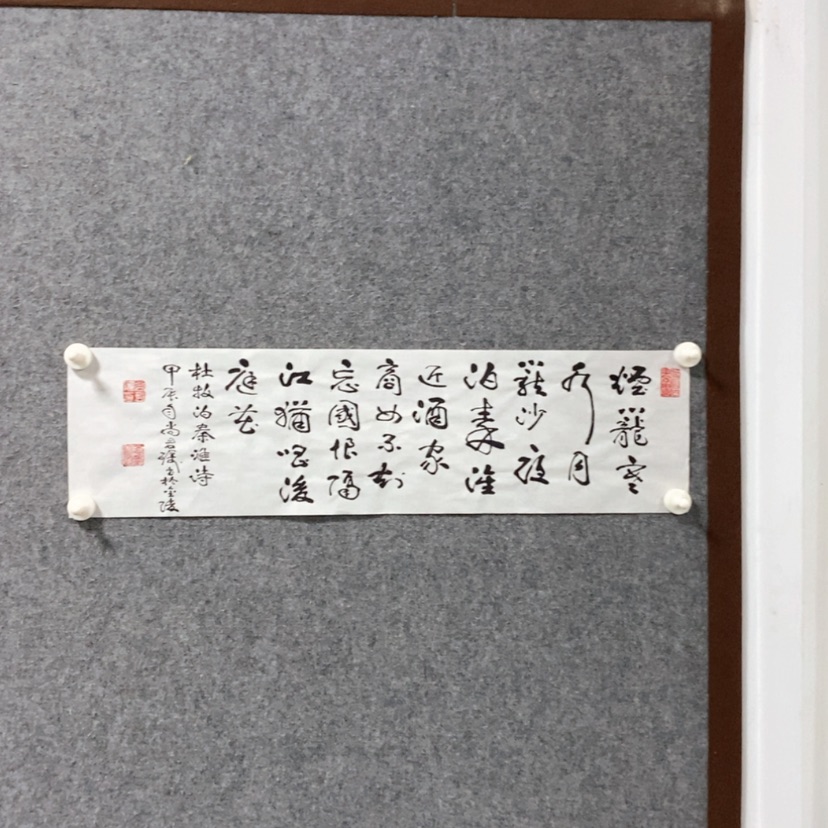 煙籠寒
水月
籠沙夜
泊秦淮
近酒家
商女不知
忘國恨隔
江猶唱後
庭花
杜牧泊秦淮詩
甲辰尚君於金陵